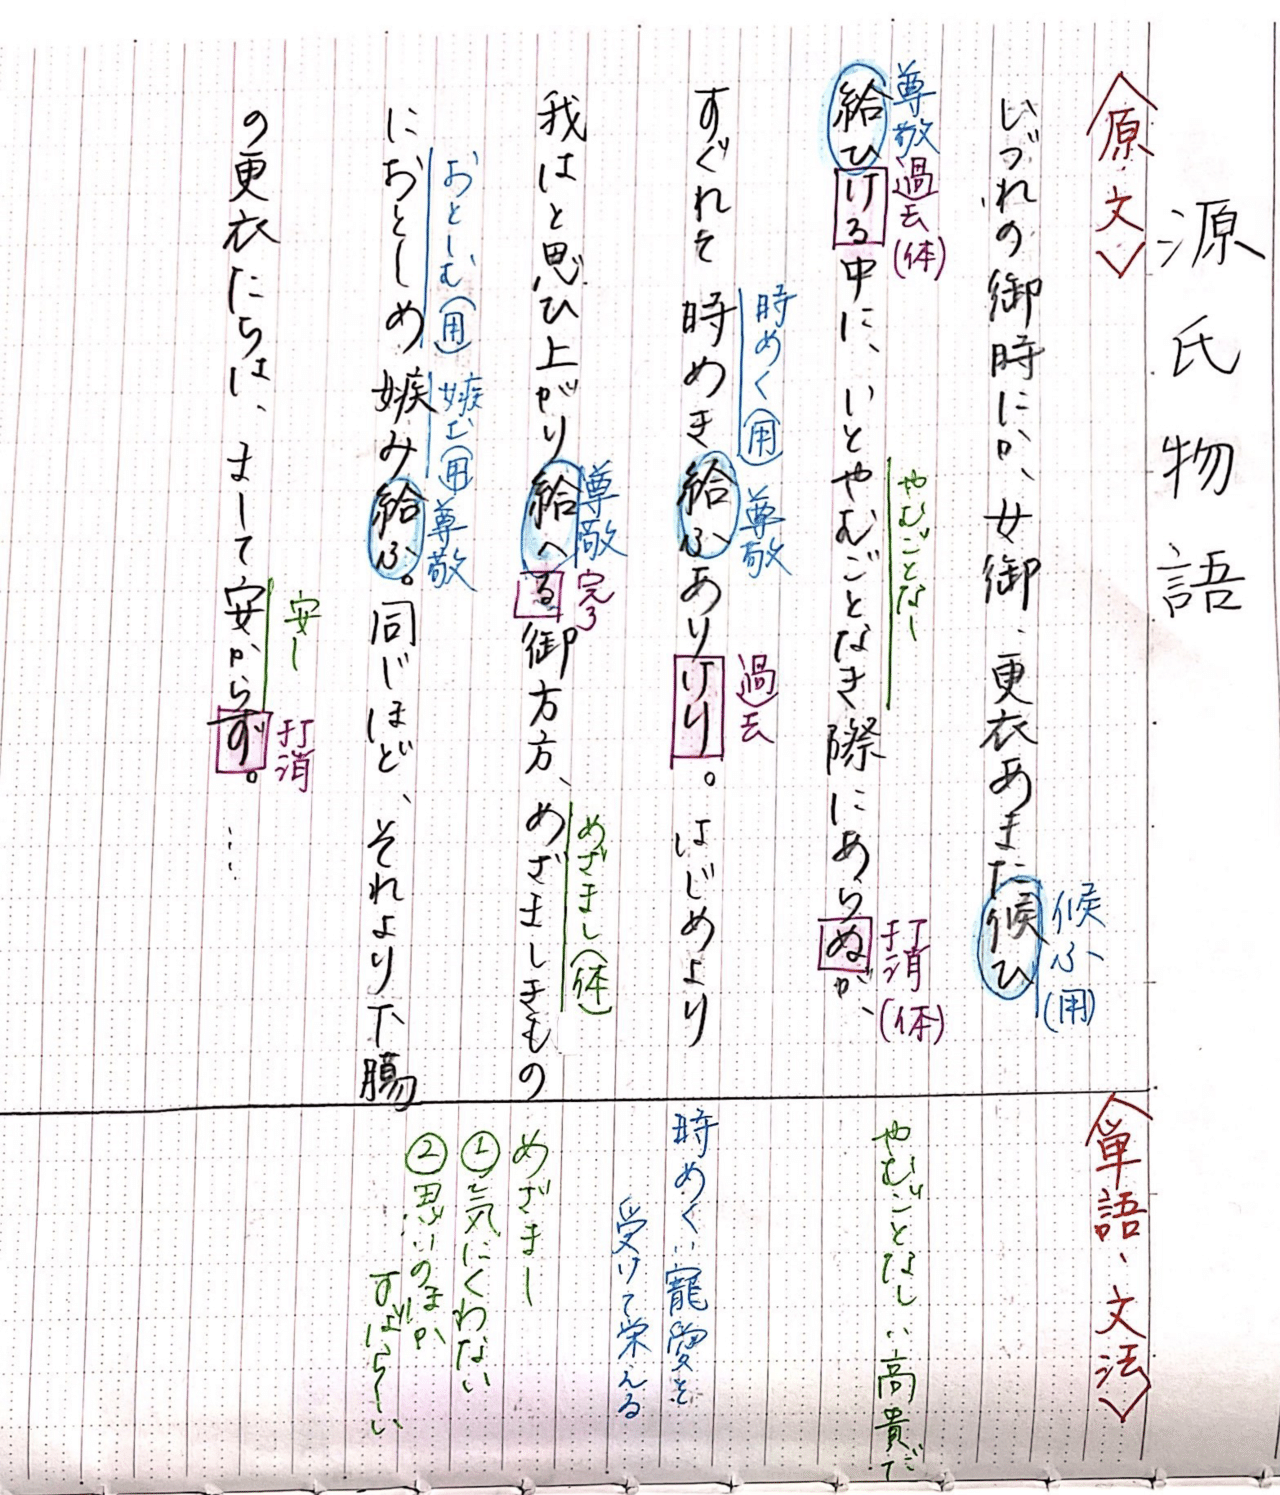 源氏物語
〈原文〉
いづれの御時にか、女御、更衣あまた候ひ
候ふ(用)
給ひける中に、いとやむごとなき際にあらぬが、
尊敬
過去(体)
やむごとなし
打消(体)
すぐれて時めき給ふありけり。はじめより
時めく(用)
尊敬
過去
我はと思ひ上がり給へる御方方、めざましきもの
尊敬
完了
めざまし(体)
におとしめ嫉み給ふ。同じほど、それより下臈
おとしむ(用)
嫉む(用)
尊敬
の更衣たちは、まして安からず。…
安し
打消
〈単語、文法〉
やむごとなし…高貴だ
時めく…寵愛を
受けて栄える
めざまし
①気にくわない
②思いのほか
すばらしい